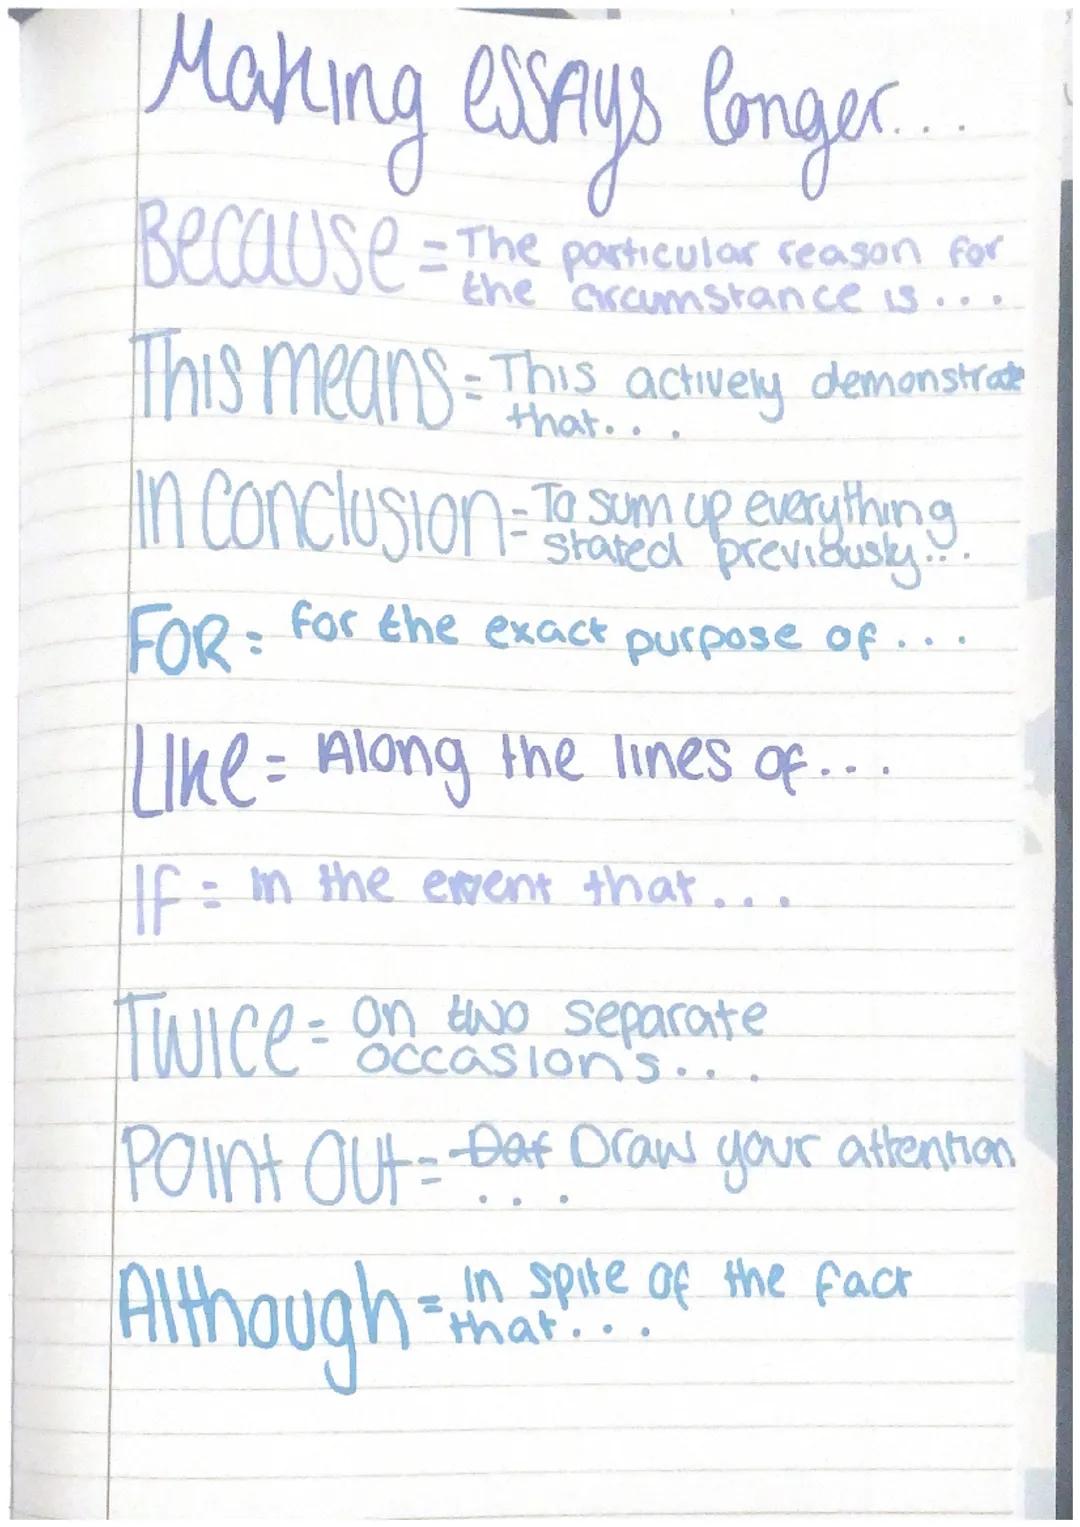 Making essays longer...
Because = The particular reason for
the circumstance is...
This means = This actively demonstrate
that...
In conclusion = To sum up everything
stated previously...
FOR = for the exact purpose of...
Like = Along the lines of...
If = in the event that...
Twice = On two separate
occasions...
Point out = Draw your attention
...
Although = In spite of the fact
that...